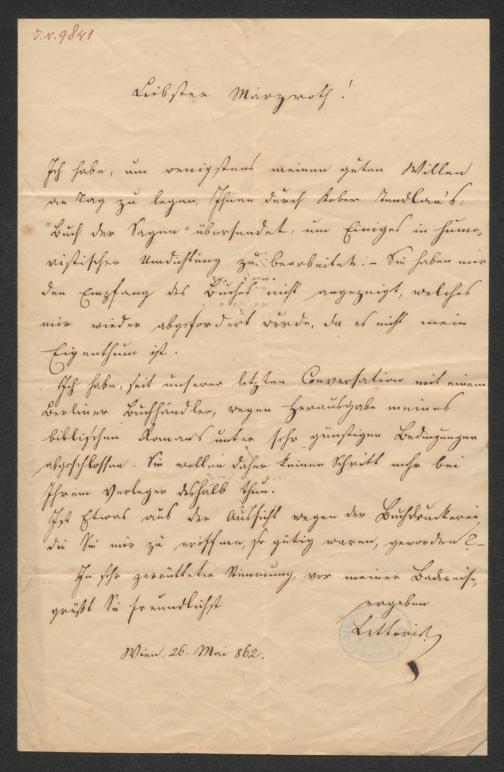 I.N. 9841
Liebster Märzroth!
Ich habe, um wenigstens meinen guten Willen
an Tag zu legen, Ihnen durch Kober Tendlau's:
"Buch der Sagen" übersendet, um Einiges in humo-
ristischer Umdichtung zu bearbeiten. – Sie haben mir
den Empfang des Buches nicht angezeigt, welches
mir wieder abgefordert wurde, da es nicht mein
Eigenthum ist.
Ich habe, seit unserer letzten Conversation mit einem
Berliner Buchhändler, wegen Herausgabe meines
biblischen Romans unter sehr günstigen Bedingungen
abgeschlossen. Sie wollen daher keinen Schritt mehr bei
Ihrem Verleger deshalb thun.
Ist Etwas aus der Aussicht wegen der Buchdruckerei,
die Sie mir zu eröffnen, so gütig waren, geworden? –
In sehr zerrütteter Stimmung, vor meiner Badereise,
grüßt Sie freundlichst
ergeben
Letteris
Wien, 26. Mai 862.